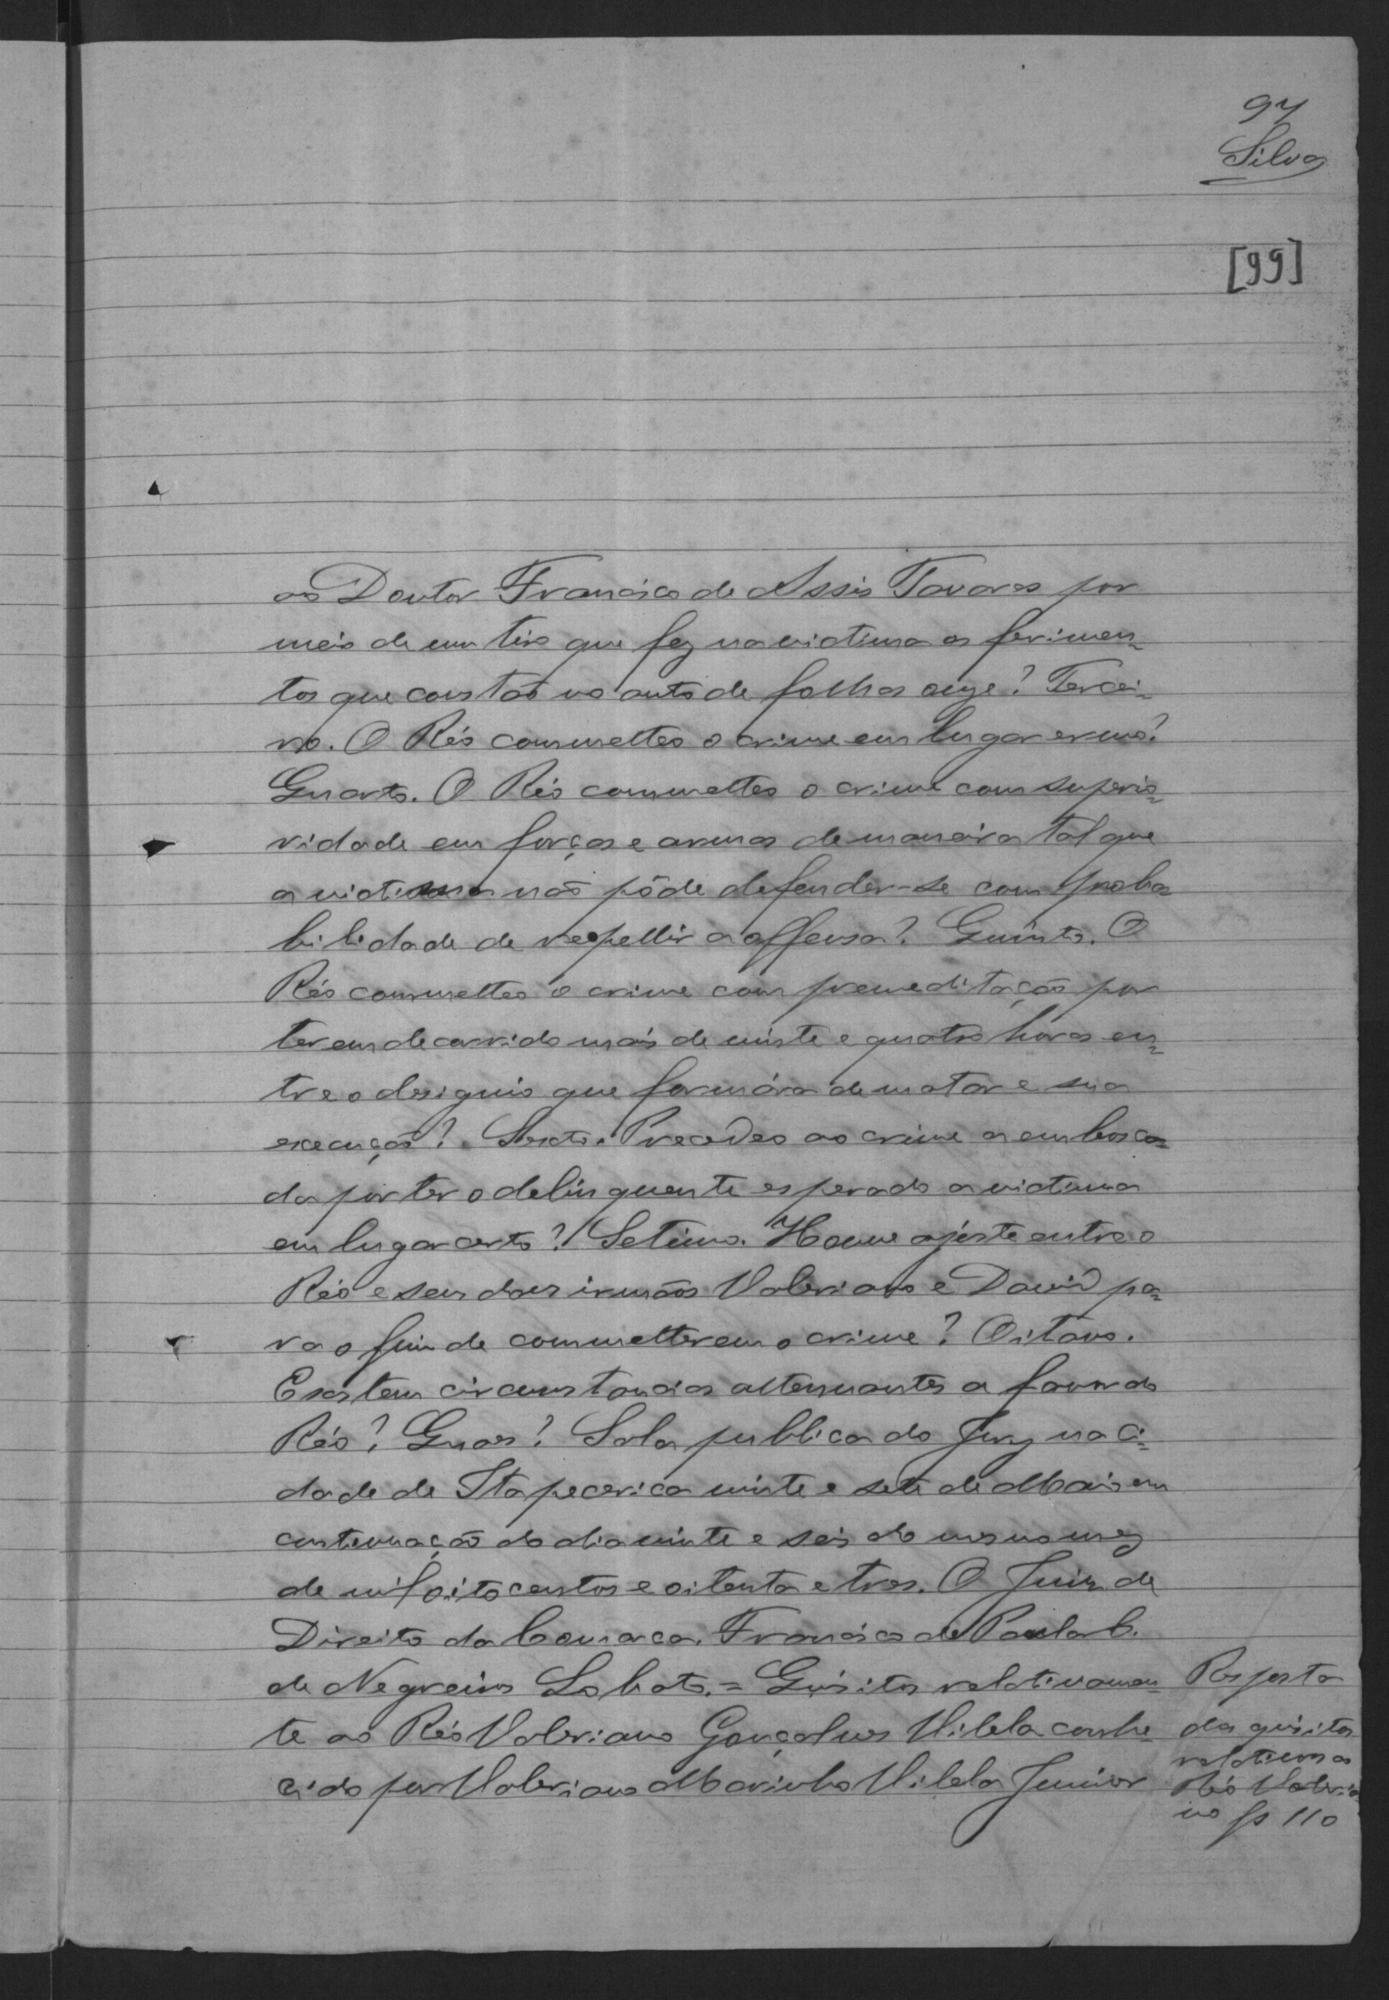 97
Silva
[99]
ao Doutor Francisco de Assis Tavares por
meio de um tiro que fez na victima os ferimen=
tos que constão no auto de folhas onze? Tercei=
ro. O Réo commetteo o crime em lugar ermo?
Quarto. O Réo commetteo o crime com superio=
ridade em forças e armas de maneira tal que
a victima não pôde defender-se com proba
bilidade de repellir a offensa? Quinto. O
Réo commetteo o crime com premeditação por
terem decorrido mais de vinte e quatro horas en=
tre o designio que formára de matar e sua
execução? Sexto. Precedeo ao crime a embosca=
da por ter o delinquente esperado a victima
em lugar certo? Setimo. Houve ajuste entre o
Réo e seus dous irmãos Valeriano e David pa=
ra o fim de commetterem o crime? Oitavo.
Existem circumstancias attenuantes a favor do
Réo? Quaes? Sala publica do Jury na Ci=
dade de Itapecerica vinte e sete de Maio em
continuação do dia vinte e seis do mesmo mez
de mil oitocentos e oitenta e tres. O Juiz de
Direito da Comarca. Francisco de Paula C.
de Negreiros Lobato. = Quisitos relativamen=
te ao Réo Valeriano Gonçalves Vilela conhe=
cido por Valeriano Marinho Vilela Junior
Resposta
dos quisitos
relativos ao
Réo Valeria
no fs 110